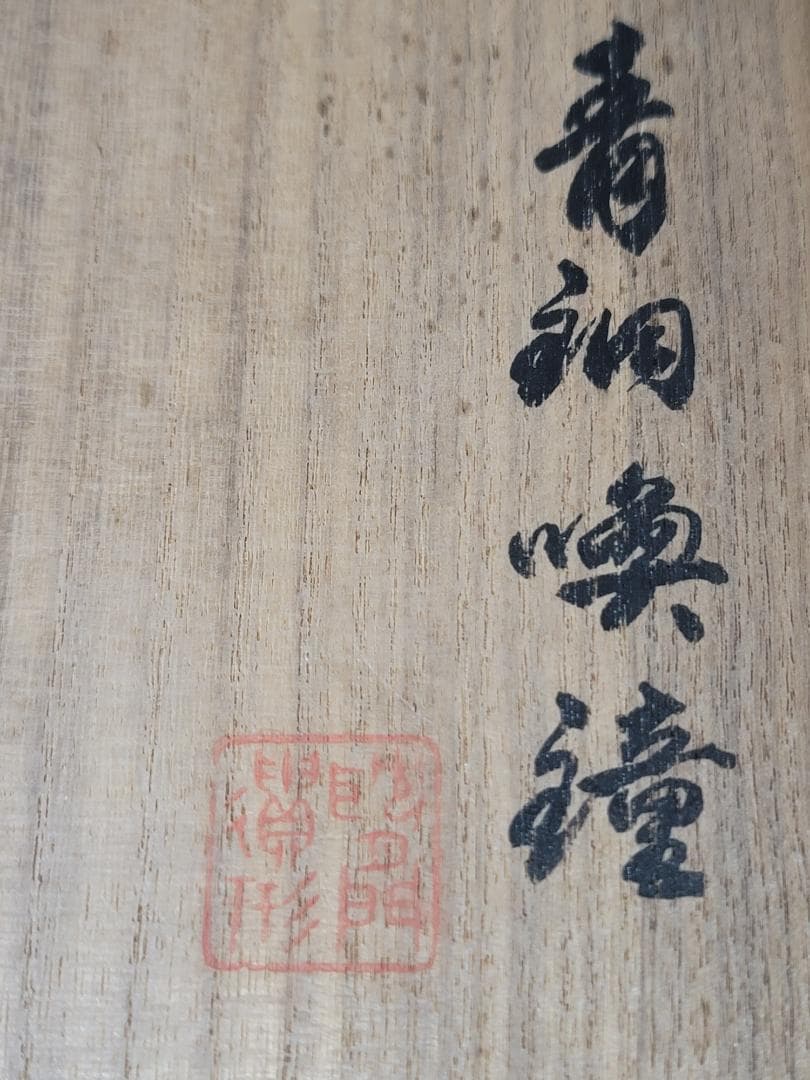 青銅喚鐘